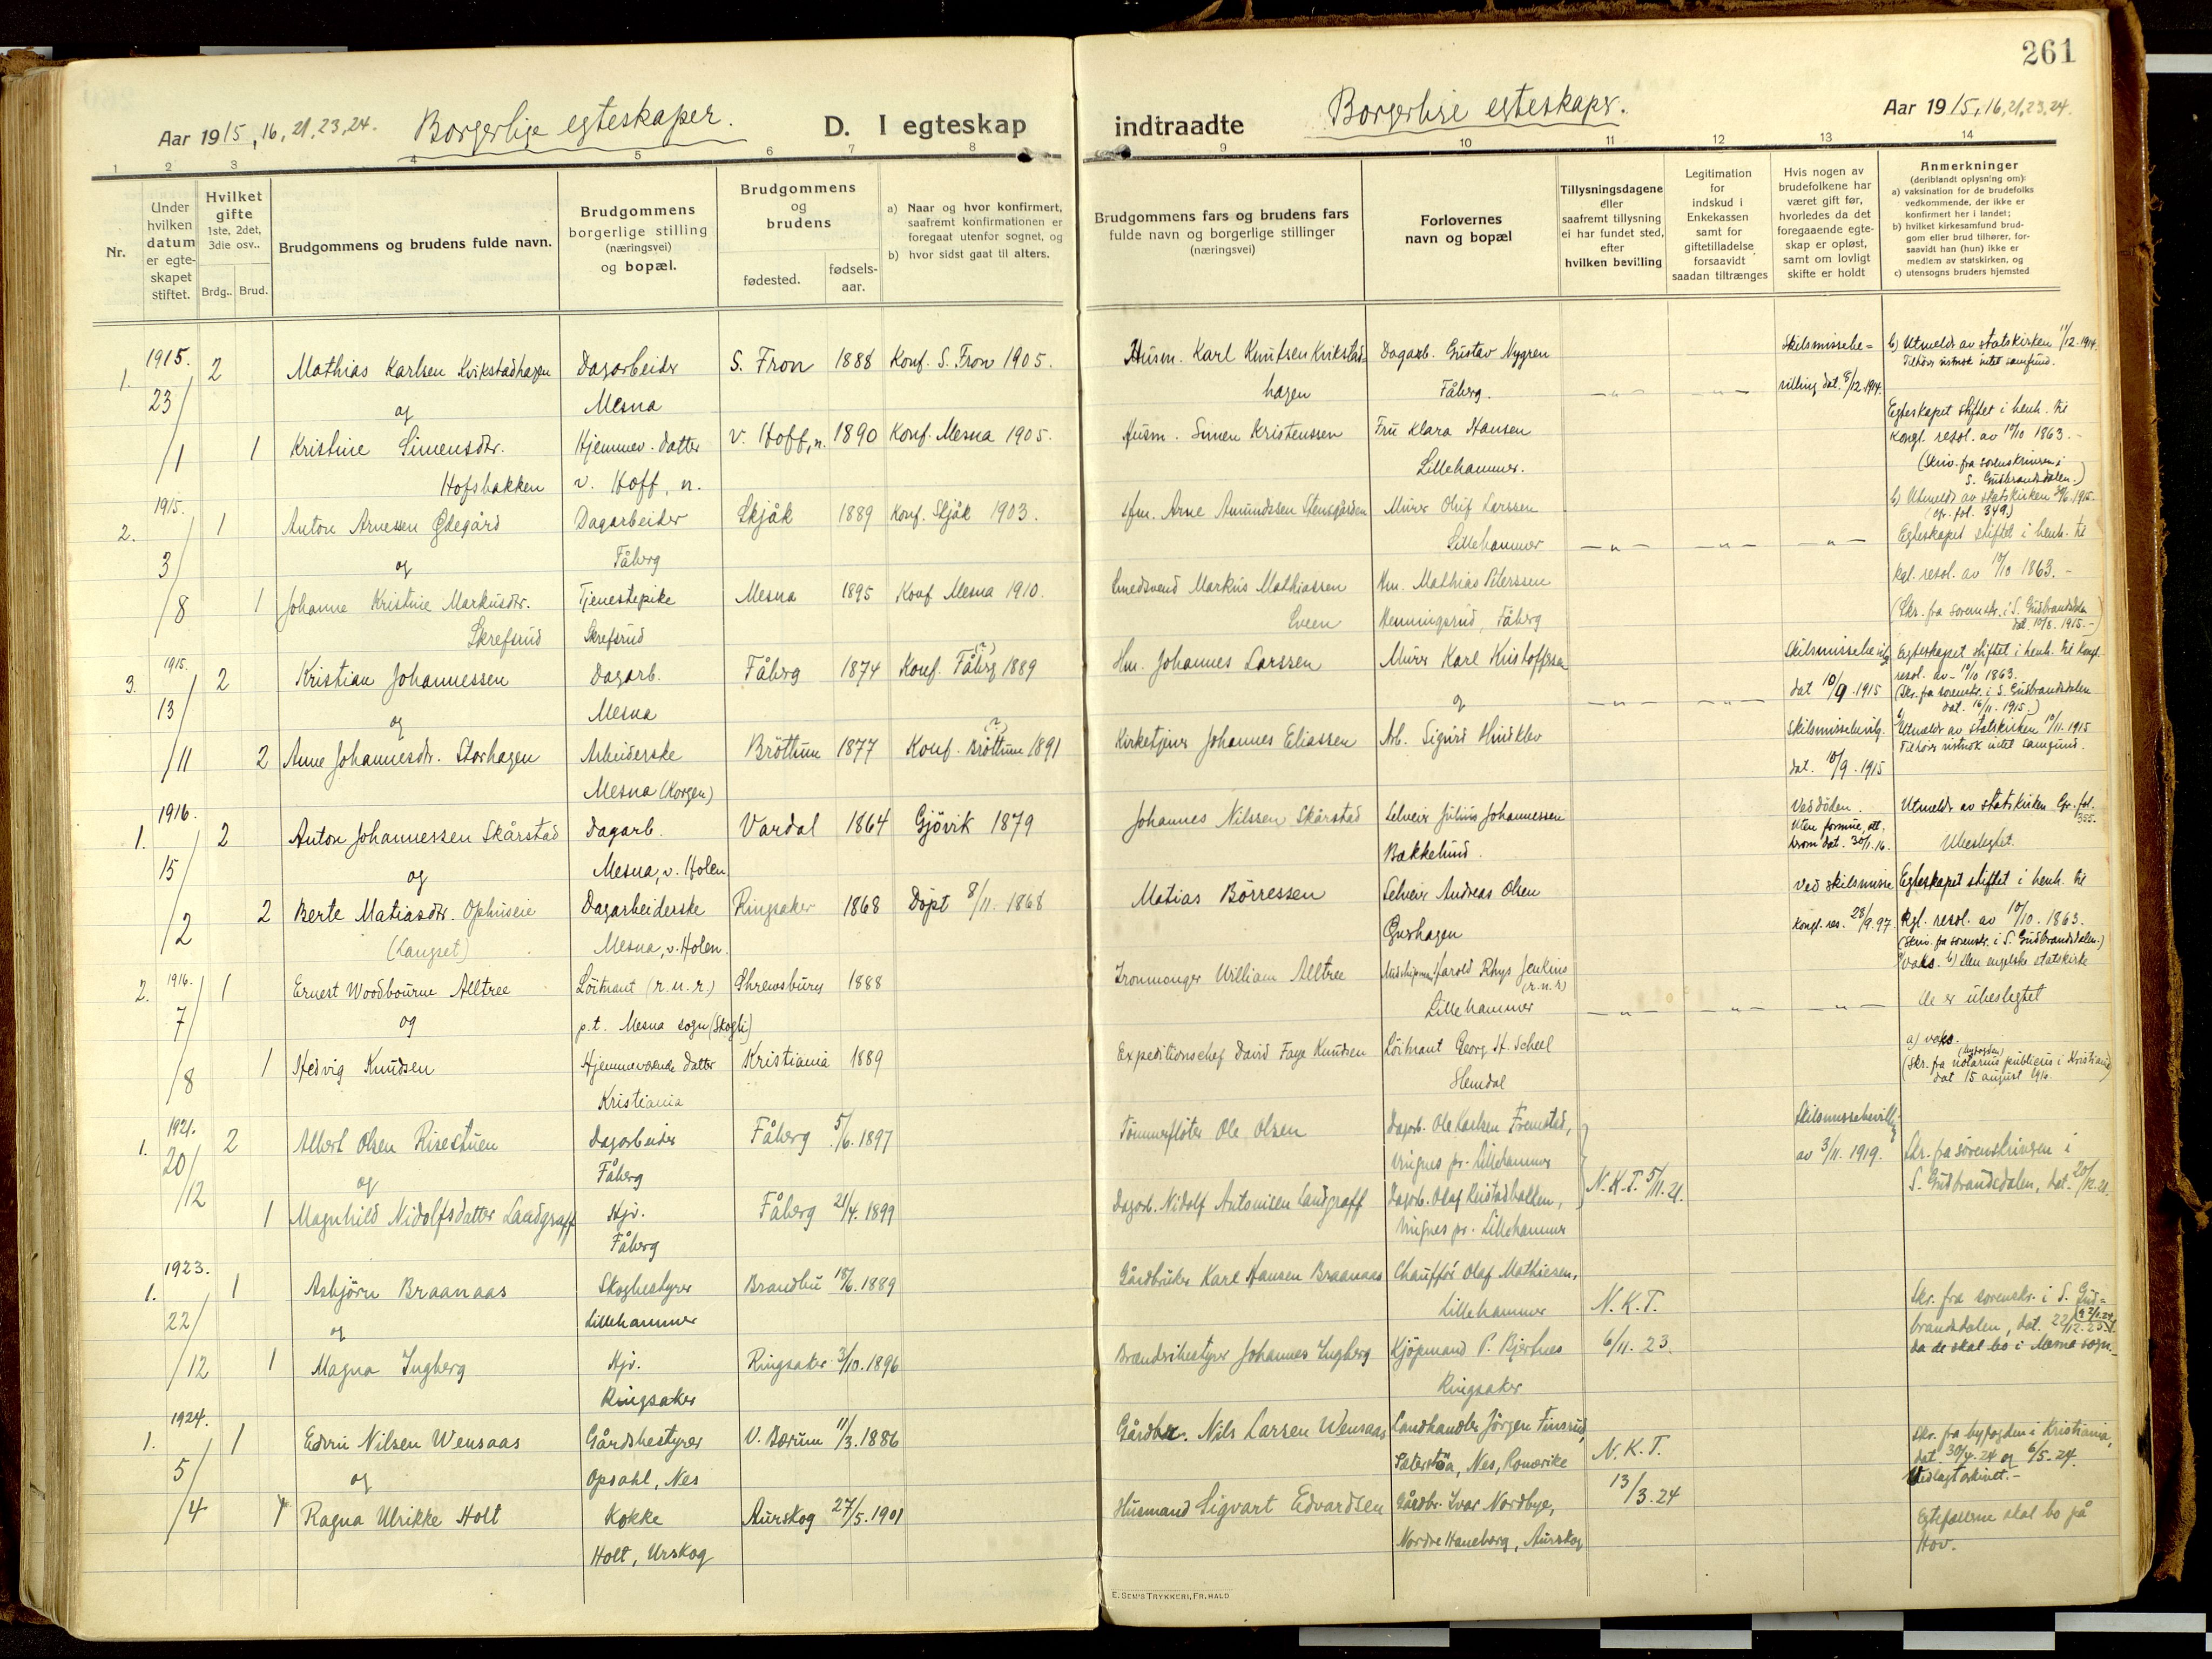 261
Aar 1915, 16, 21, 23, 24. Borgerlige egteskaper. D. I egteskap
indtraadte Borgerlige egteskaper. Aar 1915, 16, 21, 23, 24.
1 2 3 4 5 6 7 8
9 10 11 12 13 14
Nr.
Under hvilken datum er egteskapet stiftet.
Hvilket gifte 1ste, 2det, 3die osv..
Brdg.. Brud.
Brudgommens og brudens fulde navn.
Brudgommens borgerlige stilling (næringsvei) og bopæl.
Brudgommens og brudens
fødested.
fødsels-aar.
a) Naar og hvor konfirmert, saafremt konfirmationen er foregaat utenfor sognet, og
b) hvor sidst gaat til alters.
Brudgommens fars og brudens fars fulde navn og borgerlige stillinger (næringsvei)
Forlovernes navn og bopæl
Tillysningsdagene eller saafremt tillysning ei har fundet sted, efter hvilken bevilling
Legitimation for indskud i Enkekassen samt for giftetilladelse forsaavidt saadan tiltrænges
Hvis nogen av brudefolkene har været gift før, hvorledes da det foregaaende egteskap er opløst, samt om lovligt skifte er holdt
Anmerkninger (deriblandt oplysning om):
a) vaksination for de brudefolks vedkommende, der ikke er konfirmert her i landet;
b) hvilket kirkesamfund brudgom eller brud tilhører, forsaavidt han (hun) ikke er medlem av statskirken, og
c) utensogns bruders hjemsted
1. 1915. 23/1 2 Mathias Karlsen Kvikstadhagen Dagarbeider S. Fron 1888 Konf. S. Fron 1905.
og Mesna
1 Kristine Simensdtr. Hjemmev. datter v. Hoff, n. 1890 Konf. Mesna 1905.
Hofsbakken v. Hoff, n.
Husm. Karl Knutsen Kvikstadhagen Dagarb. Gustav Nygren Fåberg.
Skilsmissebevilling dat. 8/12 1914. b) Utmeldt av statskirken 11/12 1914. Tilhører vistnok intet samfund.
Husm. Simen Kristenssen Fru Klara Hansen Lillehammer.
Egteskapet stiftet i henh. til kongl. resol. av 10/10 1863. - (Skriv. fra sorenskriveren i S. Gudbrandsdalen.)
2. 1915. 3/8 1 Anton Arnessen Ødegård Dagarbeider Skjåk 1889 Konf. Skjåk 1903.
og Fåberg
1 Johanne Kristine Markusdtr. Tjenestepike Mesna 1895 Konf Mesna 1910.
Skrefsrud Skrefsrud
Hm. Arne Amundssen Stensgården Murer Oluf Larssen Lillehammer
b) Utmeldt av statskirken 24/6 1915. (cfr. fol. 349.)
Egteskapet stiftet i henh. til kgl. resol. av 10/10 1863. -
Smedsvend Markus Mathiassen Sveen Hm. Mathias Peterssen Henningsrud, Fåberg
(Skr. fra sorenskr. i S. Gudbrandsdalen dat. 10/8. 1915. -)
3. 1915. 13/11 2 Kristian Johannessen Dagarb. Fåberg 1874 Konf. Fåberg (?) 1889
og Mesna
2 Anne Johannesdtr. Storhagen Arbeiderske Bröttum 1877 Konf. Bröttum (?) 1891
Mesna (Korgen)
Hm. Johannes Larssen Murer Karl Kristoffersen
og
Skilsmissebevilg dat 10/9. 1915
Egteskapet stiftet i henh. til kongl. resol. av 10/10 1863. (Skr. fra sorenskr. i S. Gudbrandsdalen dat. 16/11. 1915.)
Kirketjener Johannes Eliassen Arb. Sigurd Hindklev
Skilsmissebevilg. dat. 10/9. 1915
b) Utmeldt av statskirken 10/11. 1915 Tilhører vistnok intet samfund.
1. 1916. 15/2 2 Anton Johannessen Skårstad Dagarb. Vardal 1864 Gjövik 1879
og Mesna, v. Holen
2 Berte Matiasdtr. Ophuseie Dagarbeiderske Ringsaker 1868 Döpt 8/11. 1868
(Langset) Mesna, v. Holen.
Johannes Nilssen Skårstad Selveier Julius Johannessen Bakkelund.
Ved döden. Uten formue, att. herom dat. 30/1. 16. Utmeldt av statskirken Cfr. fol. 355. Ubeslegtet.
Matias Börressen Selveier Andreas Olsen
Ved skilsmisse kongl. res. 28/9. 97. Egteskapet stiftet i henh. til kgl. resol. av 10/10. 1863. (Skriv. fra sorenskr. i S. Gudbrandsdalen.)
2. 1916. 7/8 1 Ernest Woodbourne Alltree Löitnant (r. n. r.) Shrewsbury 1888
og p. t. Mesna sogn (Skogli)
1 Hedvig Knudsen Hjemmeværende datter Kristiania 1889
Kristiania
Ironmonger William Alltree Midshipman Harold Rhys Jenkins (r. n. r) Lillehammer
a) vaks. b) Den engelske statskirke De er ubeslegtet
Expeditionschef David Faye Knudsen Löitnant Georg H. Scheel
a) vaks. (Skr. fra (byfogden) notarius publicus i Kristiania dat 15 august 1916.)
1. 1921. 20/12 2 Albert Olsen Risestuen Dagarbeider Fåberg 5/6. 1897
og Fåberg
1 Magnhild Nidolfsdatter Landgraff Hjv. Fåberg 21/4. 1899
Fåberg
Tömmerflöter Ole Olsen Dagarb. Ole Karlsen Fremstad, Vingnes pr. Lillehammer
Skilsmissebevilling av 3/11. 1919. Skr. fra sorenskriveren i S. Gudbrandsdalen, dat. 20/12. 21.
Dagarb. Nidolf Antonisen Landgraff Vingnes pr. Lillehammer N. K. T. 5/11. 21.
1. 1923. 22/12 1 Asbjörn Braanaas Skogbestyrer Brandbu 18/6. 1889
og Lillehammer
1 Magna Ingberg Hjv. Ringsaker 3/10. 1896
Ringsaker
Gårdbruker Karl Hansen Braanaas Chaufför Olaf Mathiesen, Lillehammer N. K. T. 6/11. 23.
Skr. fra sorenskr. i S. Gudbrandsdalen, dat. 22/12. 23
da de skal bo i Mesna sogn.
Brænderibestyrer Johannes Ingberg Kjöpmand P. Bjerknes Ringsaker
1. 1924. 5/4 1 Edvin Nilsen Wensaas Gårdsbestyrer V. Bærum 11/3. 1886
og Opsahl, Nes
1 Ragna Ulrikke Holt Kokke Aurskog 27/5. 1901
Holt, Urskog
Gårdbr. Nils Larsen Wensaas Landhandler Jörgen Finsrud, Sæterstöa, Nes, Romerike N. K. T. 13/3. 24
Skr. fra byfogden i Kristiania, dat. 30/4. 24 og 6/5. 24. Vedlagt arkivet. -
Husmand Sigvart Edvardsen Gårdbr. Ivar Nordbye, Nordre Haneborg, Aurskog
Egtefællerne skal bo på Hov.
E. SEM'S TRYKKERI, FR. HALD